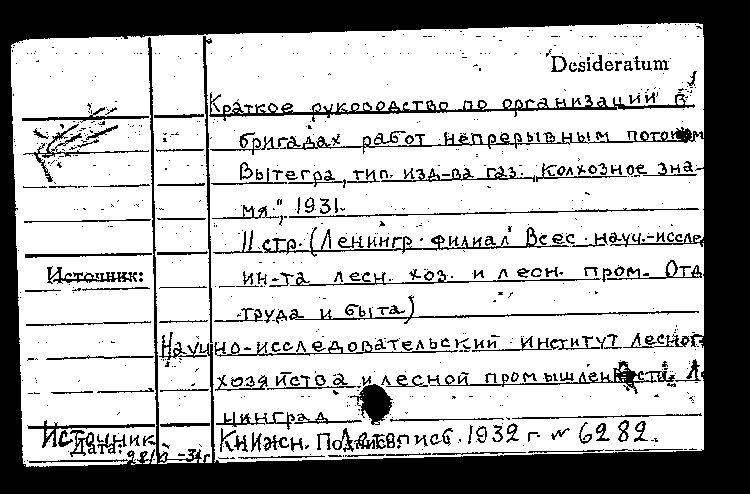 Desideratum
Краткое руководство по организации в
бригадах работ непрерывным потоком
Вытегра, тип. изд-ва газ. „Колхозное зна-
мя", 1931.
11 стр. (Ленингр. филиал Всес. науч.-иссле
Источник: ин-та лесн. хоз. и лесн. пром. Отд.
труда и быта)
Научно-исследовательский институт лесного
хозяйства и лесной промышленности. Ле
нинград
Источник Книжн. Летопись. 1932 г. № 6282.
Дата: Подпись: